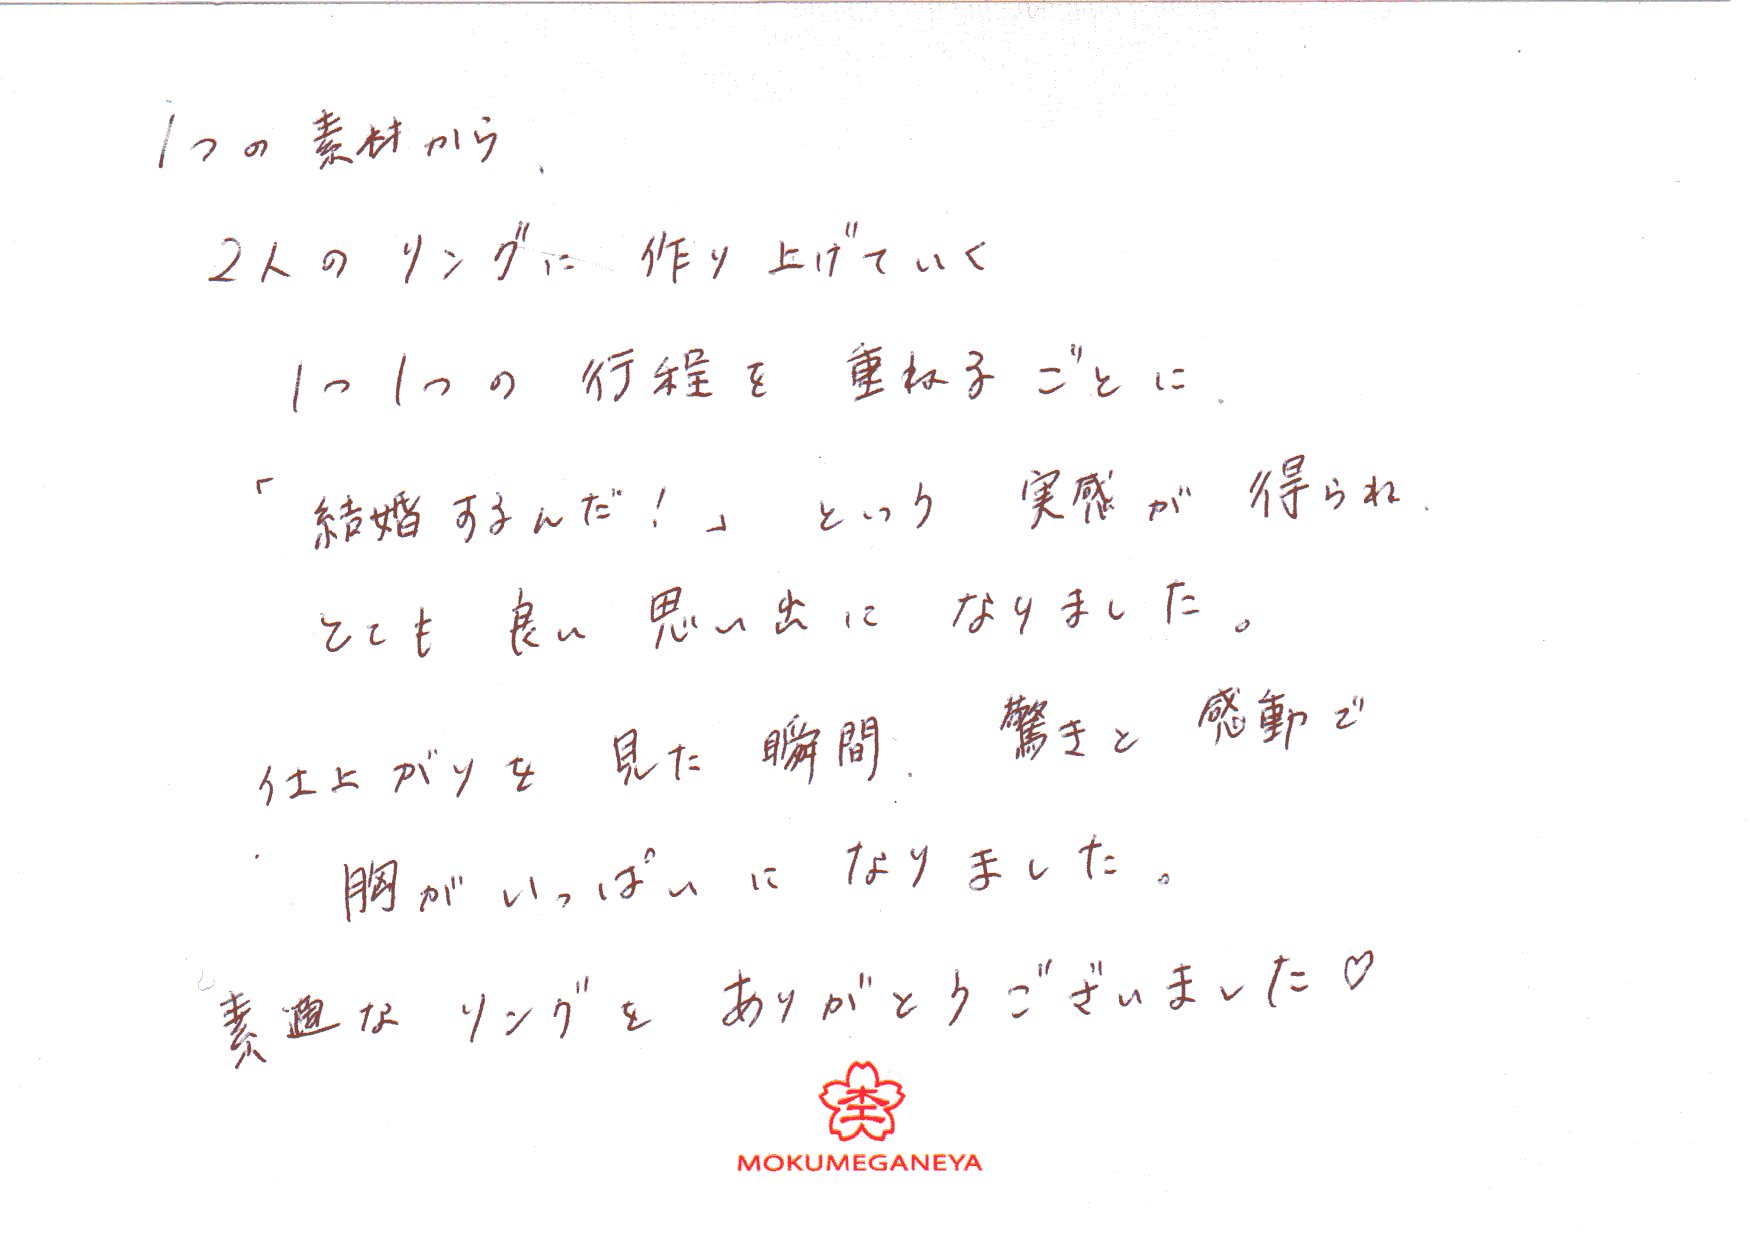 1つの素材から、
2人のリングに作り上げていく
1つ1つの行程を重ねるごとに、
「結婚するんだ!」という実感が得られ、
とても良い思い出になりました。
仕上がりを見た瞬間、驚きと感動で
胸がいっぱいになりました。
素適なリングをありがとうございました♡
杢
MOKUMEGANEYA